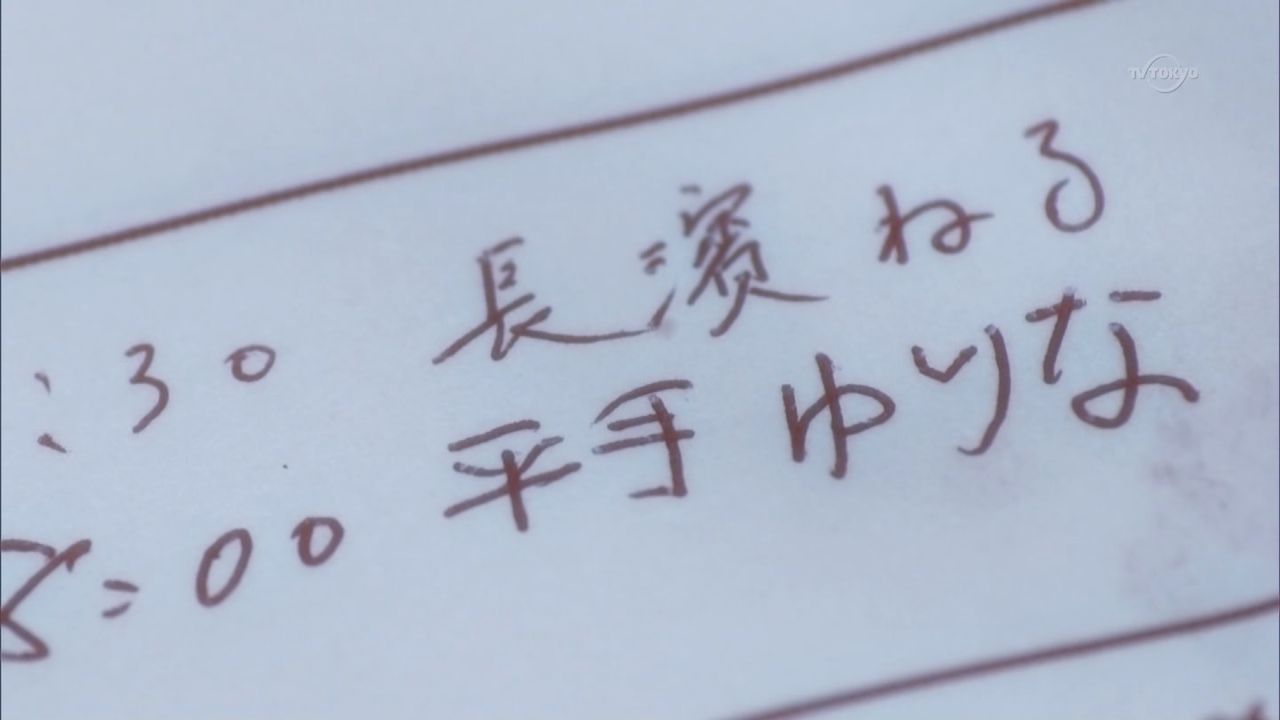 TV TOKYO
:30 長濱ねる
8:00 平手ゆりな